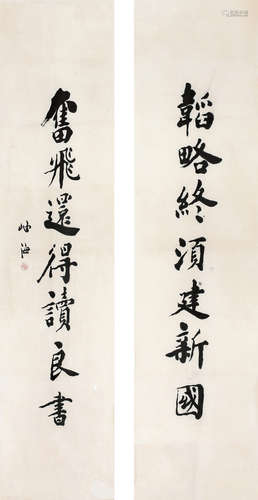 韜略終須建新國
奮飛還得讀良書
岫海